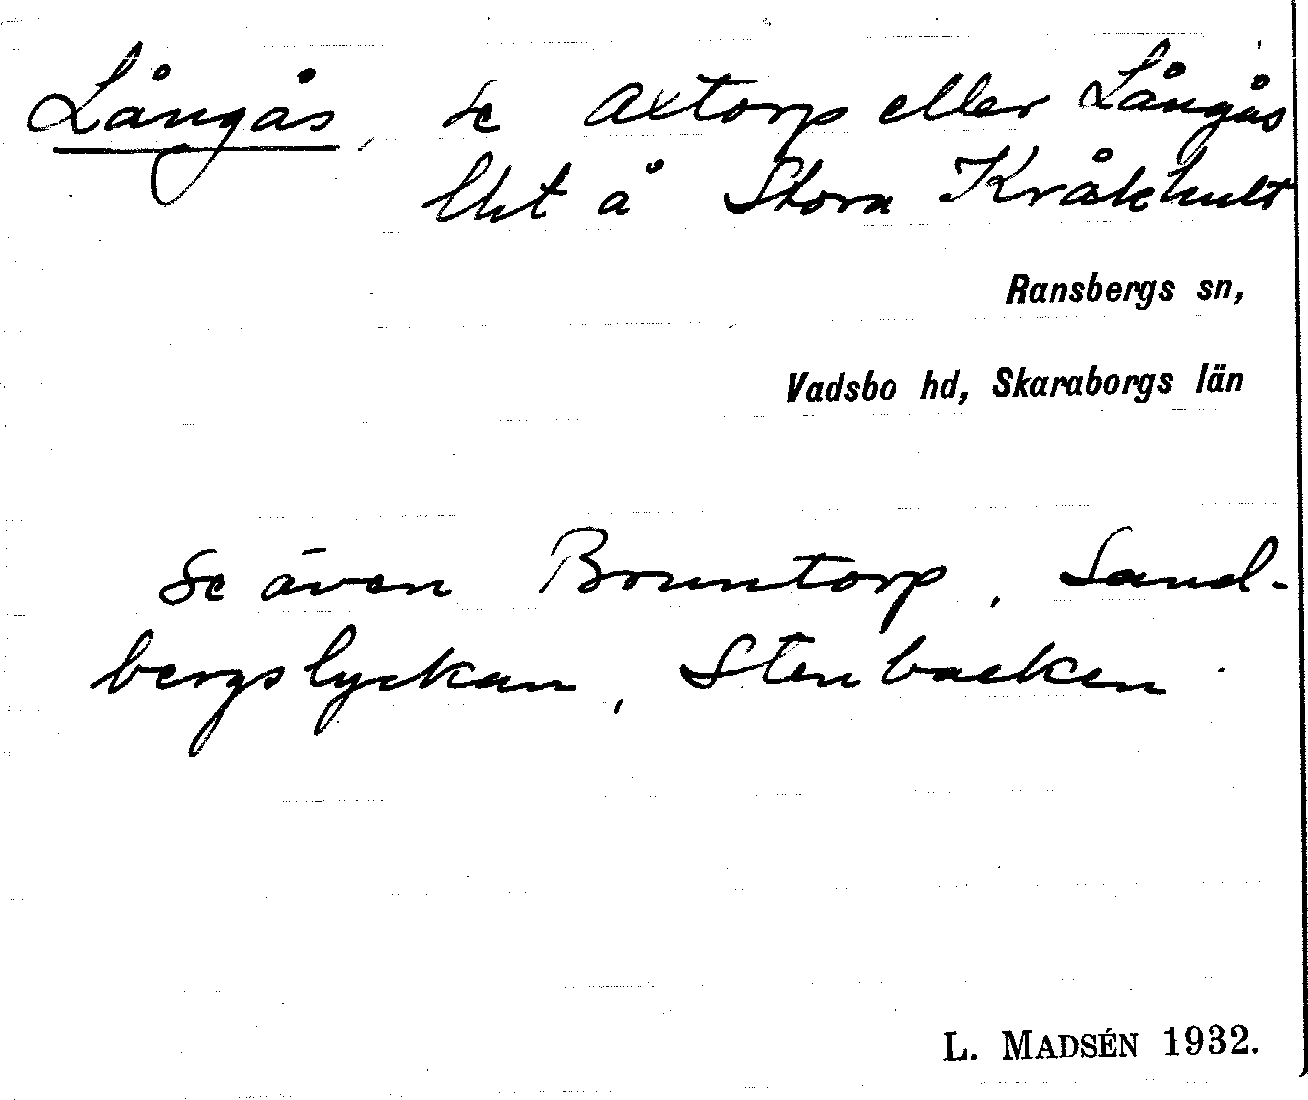 Långås, se Axtorp eller Långås
lht å Stora Kråkhult
Ransbergs sn,
Vadsbo hd, Skaraborgs län
Se även Brunntorp, Sand-
bergslyckan, Stenbacken.
L. MADSÉN 1932.